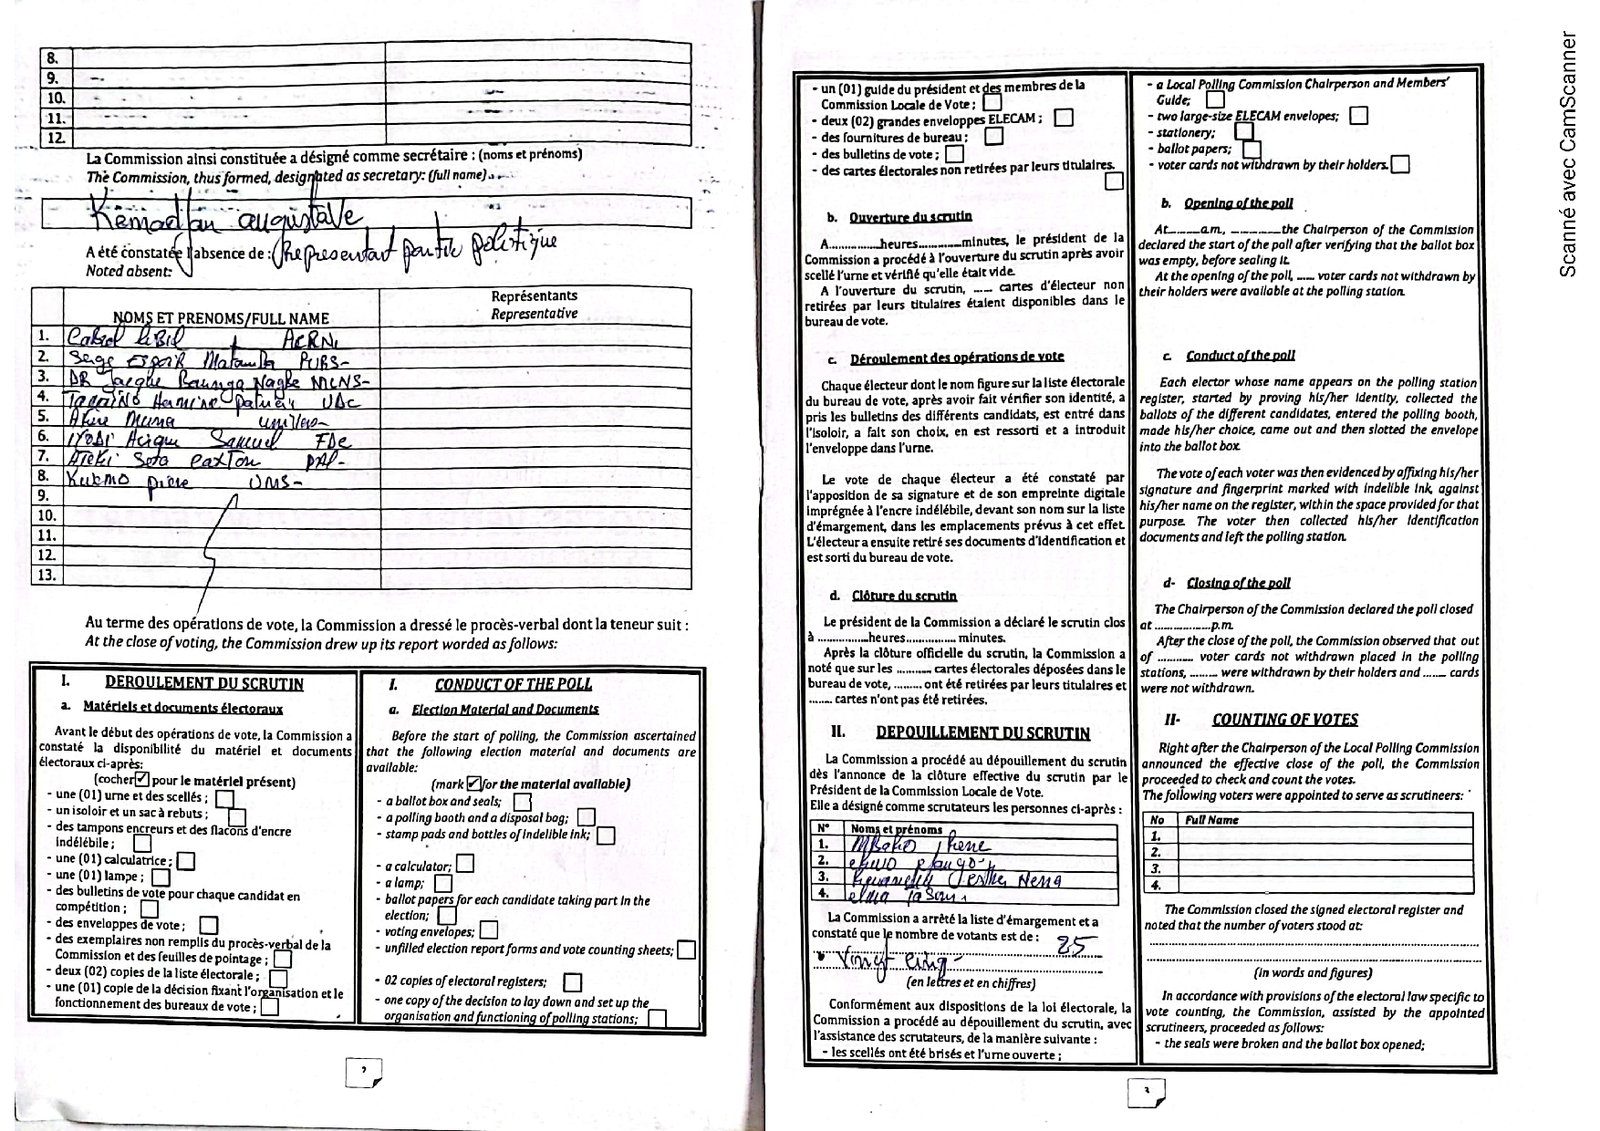 8.
9.
10.
11.
12.
La Commission ainsi constituée a désigné comme secrétaire : (noms et prénoms)
The Commission, thus formed, designated as secretary: (full name)
Kemadjou augustave
A été constatée l'absence de : Representant partie politique
Noted absent:
NOMS ET PRENOMS/FULL NAME
Représentants
Representative
1. Cabral libil
2. Serge Espoir Matomba PURS-
3. DR Jacque Bounga Nagbe MCNS-
4. Hermine Patricia UDC
5. Akere Muna univers-
6. Iyodi Samuel FDC
7. Ateki Seta Caxton PAL-
8. Kuemo Pierre UMS-
9.
10.
11.
12.
13.
Au terme des opérations de vote, la Commission a dressé le procès-verbal dont la teneur suit :
At the close of voting, the Commission drew up its report worded as follows:
I. DEROULEMENT DU SCRUTIN
a. Matériels et documents électoraux
Avant le début des opérations de vote, la Commission a
constaté la disponibilité du matériel et documents
électoraux ci-après:
(cocher ☑ pour le matériel présent)
- une (01) urne et des scellés ;
- un isoloir et un sac à rebuts ;
- des tampons encreurs et des flacons d'encre
indélébile ;
- une (01) calculatrice ;
- une (01) lampe ;
- des bulletins de vote pour chaque candidat en
compétition ;
- des enveloppes de vote ;
- des exemplaires non remplis du procès-verbal de la
Commission et des feuilles de pointage ;
- deux (02) copies de la liste électorale ;
- une (01) copie de la décision fixant l'organisation et le
fonctionnement des bureaux de vote ;
I. CONDUCT OF THE POLL
a. Election Material and Documents
Before the start of polling, the Commission ascertained
that the following election material and documents are
available:
(mark ☑ for the material available)
- a ballot box and seals;
- a polling booth and a disposal bag;
- stamp pads and bottles of indelible ink;
- a calculator;
- a lamp;
- ballot papers for each candidate taking part in the
election;
- voting envelopes;
- unfilled election report forms and vote counting sheets;
- 02 copies of electoral registers;
- one copy of the decision to lay down and set up the
organisation and functioning of polling stations;
2
- un (01) guide du président et des membres de la
Commission Locale de Vote ;
- deux (02) grandes enveloppes ELECAM ;
- des fournitures de bureau ;
- des bulletins de vote ;
- des cartes électorales non retirées par leurs titulaires.
b. Ouverture du scrutin
A...............heures.............minutes, le président de la
Commission a procédé à l'ouverture du scrutin après avoir
scellé l'urne et vérifié qu'elle était vide.
A l'ouverture du scrutin, ...... cartes d'électeur non
retirées par leurs titulaires étaient disponibles dans le
bureau de vote.
c. Déroulement des opérations de vote
Chaque électeur dont le nom figure sur la liste électorale
du bureau de vote, après avoir fait vérifier son identité, a
pris les bulletins des différents candidats, est entré dans
l'isoloir, a fait son choix, en est ressorti et a introduit
l'enveloppe dans l'urne.
Le vote de chaque électeur a été constaté par
l'apposition de sa signature et de son empreinte digitale
imprégnée à l'encre indélébile, devant son nom sur la liste
d'émargement, dans les emplacements prévus à cet effet.
L'électeur a ensuite retiré ses documents d'identification et
est sorti du bureau de vote.
d. Clôture du scrutin
Le président de la Commission a déclaré le scrutin clos
à ...............heures.............. minutes.
Après la clôture officielle du scrutin, la Commission a
noté que sur les .......... cartes électorales déposées dans le
bureau de vote, ........ ont été retirées par leurs titulaires et
....... cartes n'ont pas été retirées.
II. DEPOUILLEMENT DU SCRUTIN
La Commission a procédé au dépouillement du scrutin
dès l'annonce de la clôture effective du scrutin par le
Président de la Commission Locale de Vote.
Elle a désigné comme scrutateurs les personnes ci-après :
N° Noms et prénoms
1. Irene
2.
3. Esther Nena
4.
La Commission a arrêté la liste d'émargement et a
constaté que le nombre de votants est de : 25
Vingt cinq-
(en lettres et en chiffres)
Conformément aux dispositions de la loi électorale, la
Commission a procédé au dépouillement du scrutin, avec
l'assistance des scrutateurs, de la manière suivante :
- les scellés ont été brisés et l'urne ouverte ;
- a Local Polling Commission Chairperson and Members'
Guide;
- two large-size ELECAM envelopes;
- stationery;
- ballot papers;
- voter cards not withdrawn by their holders.
b. Opening of the poll
At........a.m, ............the Chairperson of the Commission
declared the start of the poll after verifying that the ballot box
was empty, before sealing it.
At the opening of the poll, ...... voter cards not withdrawn by
their holders were available at the polling station.
c. Conduct of the poll
Each elector whose name appears on the polling station
register, started by proving his/her identity, collected the
ballots of the different candidates, entered the polling booth,
made his/her choice, came out and then slotted the envelope
into the ballot box.
The vote of each voter was then evidenced by affixing his/her
signature and fingerprint marked with indelible ink, against
his/her name on the register, within the space provided for that
purpose. The voter then collected his/her identification
documents and left the polling station.
d- Closing of the poll
The Chairperson of the Commission declared the poll closed
at ...............p.m.
After the close of the poll, the Commission observed that out
of ........... voter cards not withdrawn placed in the polling
stations, ........ were withdrawn by their holders and ....... cards
were not withdrawn.
II- COUNTING OF VOTES
Right after the Chairperson of the Local Polling Commission
announced the effective close of the poll, the Commission
proceeded to check and count the votes.
The following voters were appointed to serve as scrutineers:
No Full Name
1.
2.
3.
4.
The Commission closed the signed electoral register and
noted that the number of voters stood at:
(in words and figures)
In accordance with provisions of the electoral law specific to
vote counting, the Commission, assisted by the appointed
scrutineers, proceeded as follows:
- the seals were broken and the ballot box opened;
3
Scanné avec CamScanner